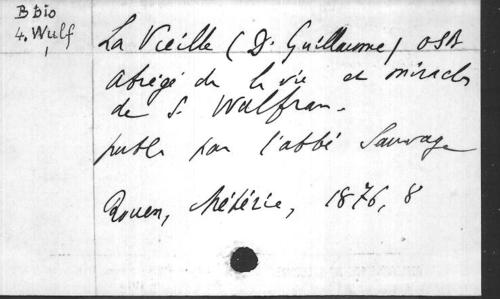 B bio
4. Wulf
La Vieille (D. Guillaume) OSB
Abrégé de la vie et miracles
de S. Wulfran.
publ. par l'abbé Sauvage
Rouen, Météric, 1876, 8